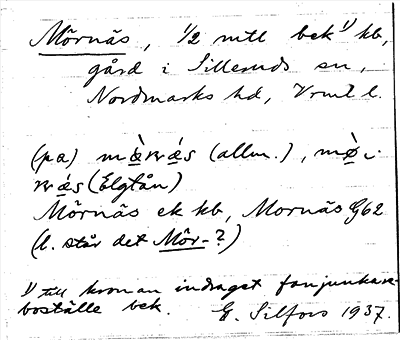 Mörnäs, 1/2 mtl bek 1) kb,
gård i Silleruds sn,
Nordmarks hd, Vrml l.
(pa) (allm.),
(Elgtån)
Mörnäs ek kb, Mornäs G62
(l. står det Mör-?)
1) till kronan indraget fanjunkare-
boställe bek. E. Silfors 1937.